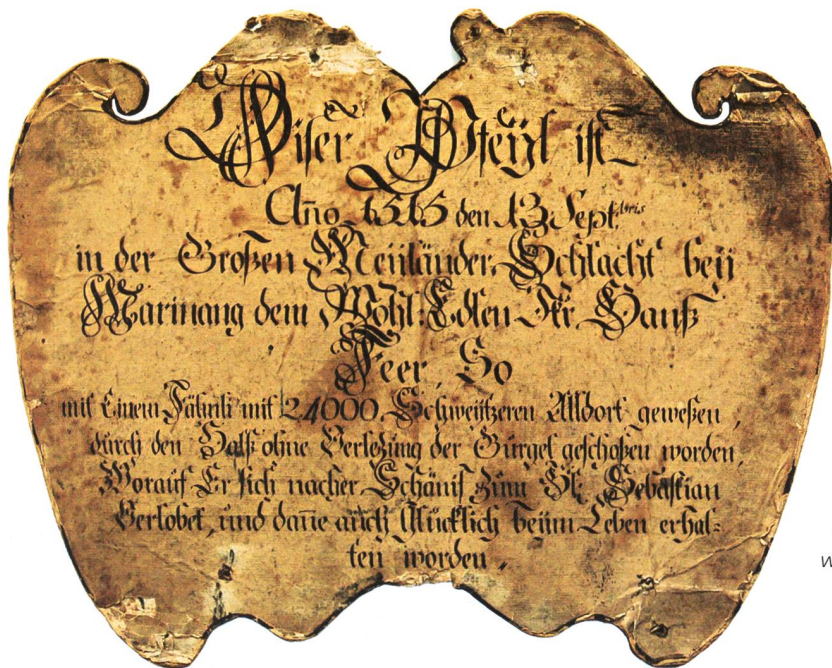 Diser Pfeijl ist
Año 1515 den 13 Sept.bris
in der Großen Meiländer Schlacht beij
Marinang dem Wohl: Edlen Hr. Hanß
Feer, So
mit Einem Fähnli mit 24000. Schweitzeren Alldort geweßen,
durch den Halß ohne Verletzung der Gurgel geschoßen worden,
Worauf Er sich nacher Schänis zum Hl. Sebastian
Verlobet, und dañe auch Glücklich beijm Leben erhal=
ten worden.